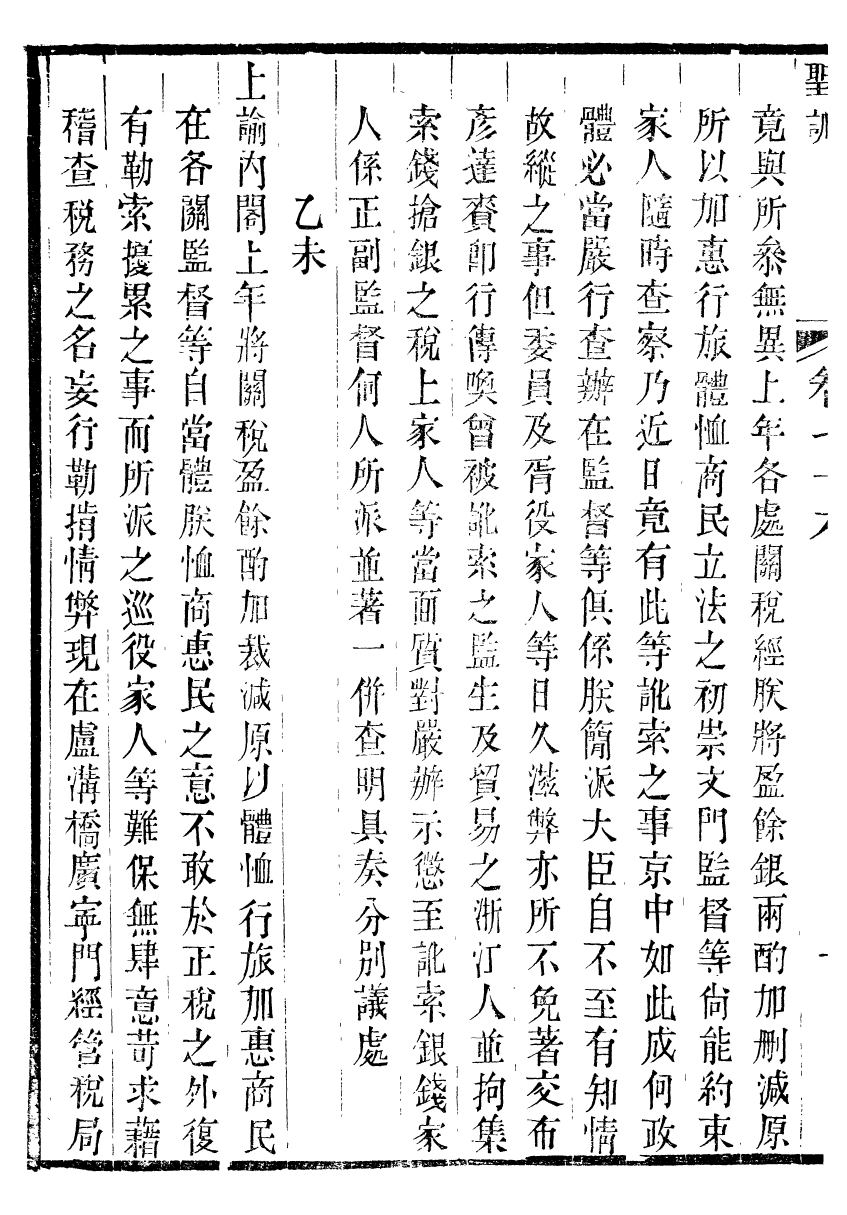 聖訓
竟與所叅無異上年各處關稅經朕將盈餘銀兩酌加刪減原
所以加惠行旅體恤商民立法之初崇文門監督等尙能約束
家人隨時查察乃近日竟有此等訛索之事京中如此成何政
體必當嚴行查辦在監督等俱係朕簡派大臣自不至有知情
故縱之事但委員及胥役家人等日久滋弊亦所不免著交布
彥達賚卽行傳喚曾被訛索之監生及貿易之浙江人並拘集
索錢搶銀之稅上家人等當面質對嚴辦示懲至訛索銀錢家
人係正副監督何人所派並著一併查明具奏分別議處
乙未
上諭內閣上年將關稅盈餘酌加裁減原以體恤行旅加惠商民
在各關監督等自當體朕恤商惠民之意不敢於正稅之外復
有勒索擾累之事而所派之巡役家人等難保無肆意苛求藉
稽查稅務之名妄行勒掯情弊現在盧溝橋廣寧門經管稅局